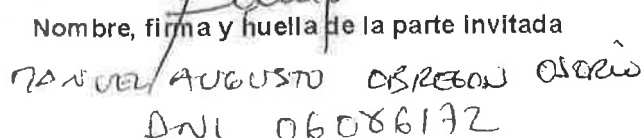 Nombre, firma y huella de la parte invitada
MANUEL AUGUSTO OBREGON OSORIO
DNI 06086172